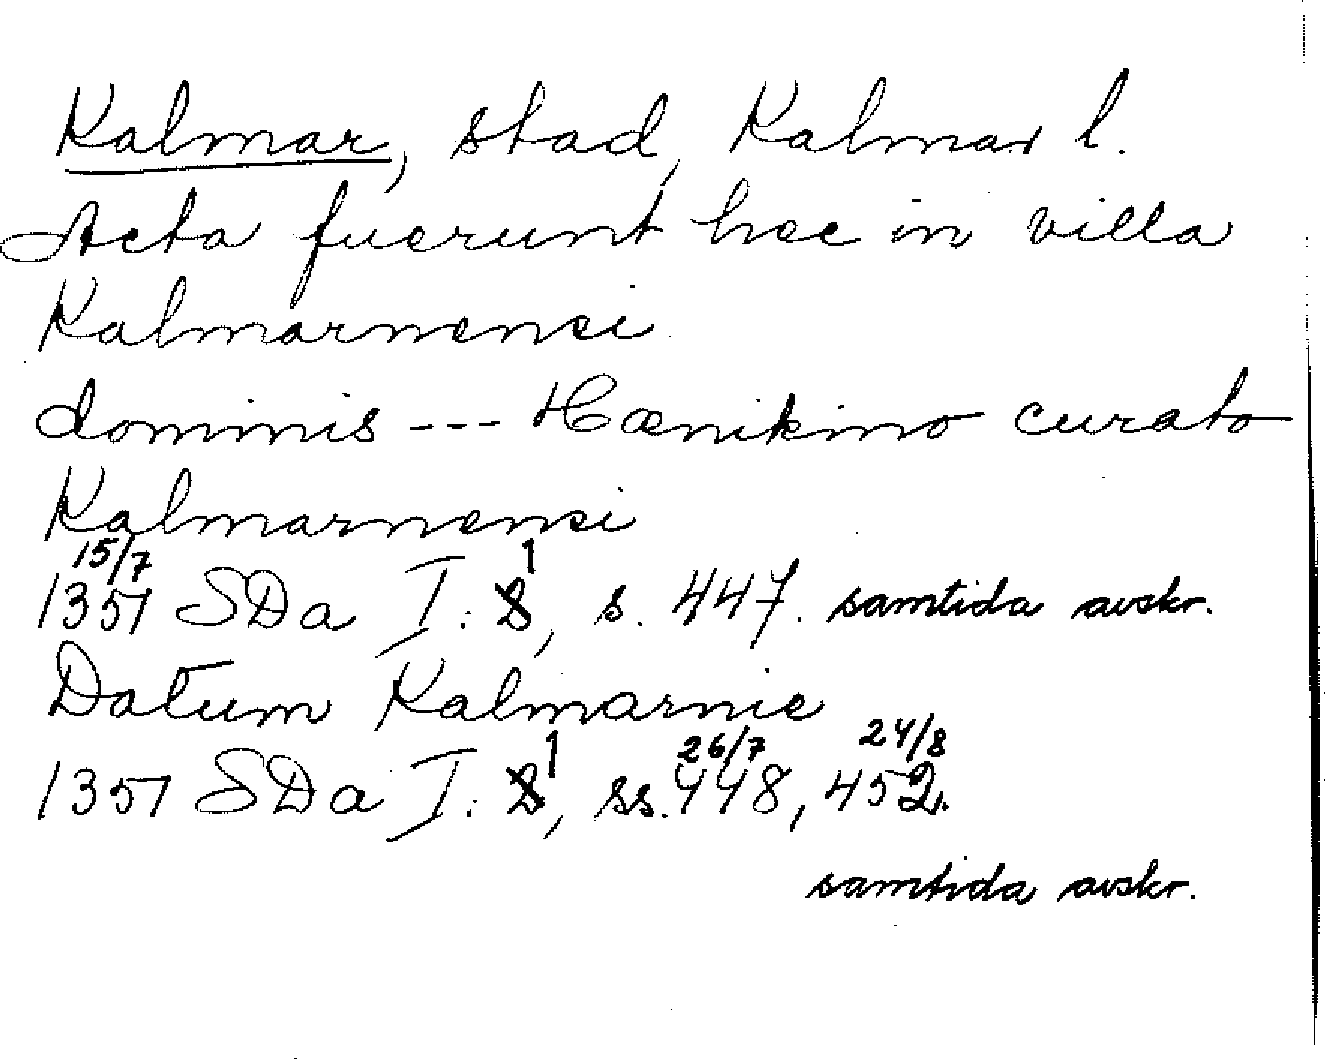 Kalmar, stad, Kalmar l.
Acta fuerunt hec in villa
Kalmarnensi
dominis --- Hænikino curato
Kalmarnensi
15/7
1357 SDa I: 1, s. 447. samtida avskr.
Datum Kalmarnie
26/7 24/8
1357 SDa I: 1, ss. 448, 452.
samtida avskr.